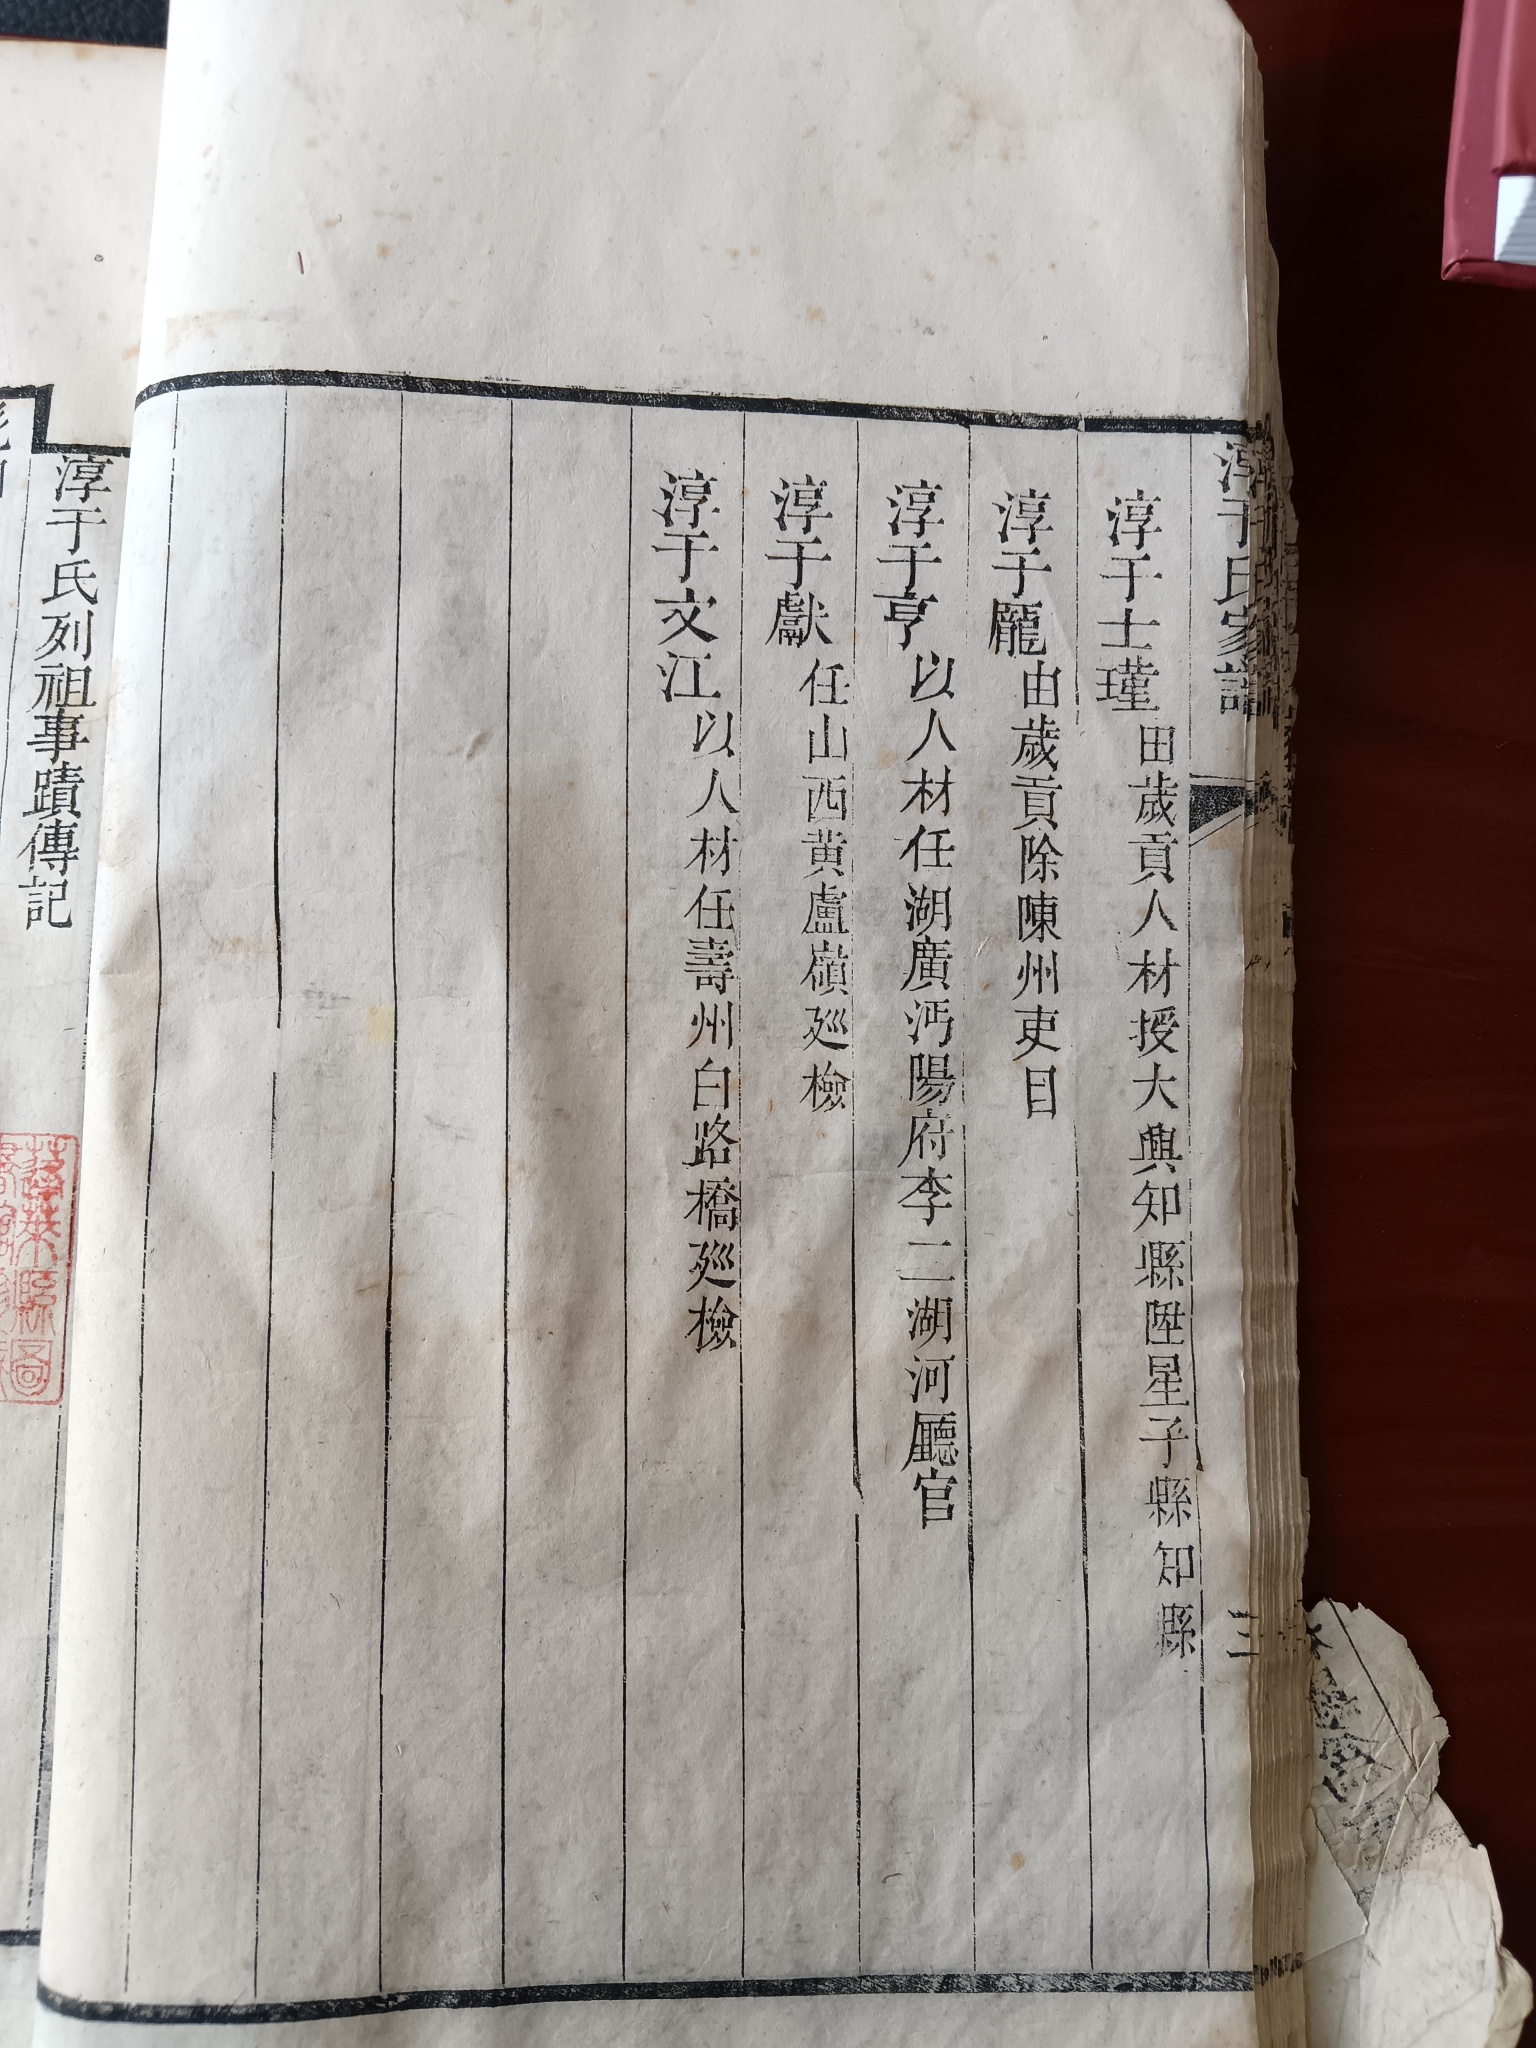 淳于氏家譜
三
淳于士瑾田歲貢人材授大興知縣陞星子縣知縣
淳于龐由歲貢除陳州吏目
淳于亨以人材任湖廣沔陽府李二湖河廳官
淳于獻任山西黄盧嶺廵檢
淳于文江以人材任壽州白路橋廵檢
淳于氏列祖事蹟傳記